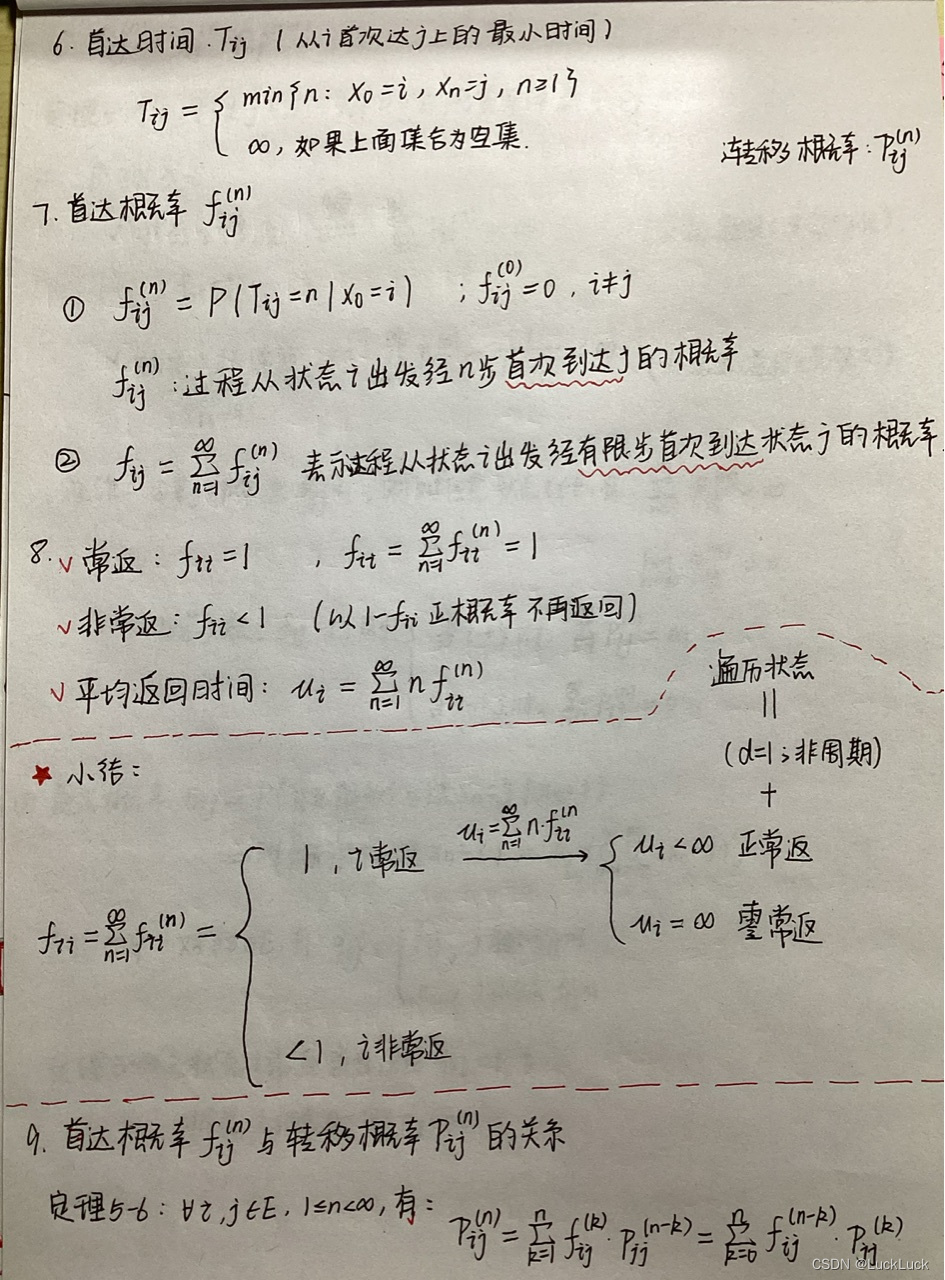 6. 首达时间 Tij (从i首次达j上的最小时间)
Tij = { min{n: X0=i, Xn=j, n≥1}
∞, 如果上面集合为空集.
转移概率: Pij^(n)
7. 首达概率 fij^(n)
① fij^(n) = P(Tij=n|X0=i) ; fij^(0)=0, i≠j
fij^(n): 过程从状态i出发经n步首次到达j的概率
② fij = ∑_{n=1}^{∞} fij^(n) 表示过程从状态i出发经有限步首次到达状态j的概率
8. √ 常返: fii=1 , fii = ∑_{n=1}^{∞} fii^(n) = 1
√ 非常返: fii<1 (以1-fii正概率不再返回)
√ 平均返回时间: ui = ∑_{n=1}^{∞} n fii^(n)
遍历状态
||
(d=1; 非周期)
+
★ 小结:
fii = ∑_{n=1}^{∞} fii^(n) = { 1, i常返 ui=∑_{n=1}^{∞} n·fii^(n → { ui<∞ 正常返
ui=∞ 零常返
<1, i非常返
9. 首达概率 fij^(n) 与转移概率 Pij^(n) 的关系
定理5-6: ∀i,j∈E, 1≤n<∞, 有:
Pij^(n) = ∑_{k=1}^{n} fij^(k)·Pjj^(n-k) = ∑_{k=0}^{n} fij^(n-k)·Pjj^(k)
CSDN @LuckLuck